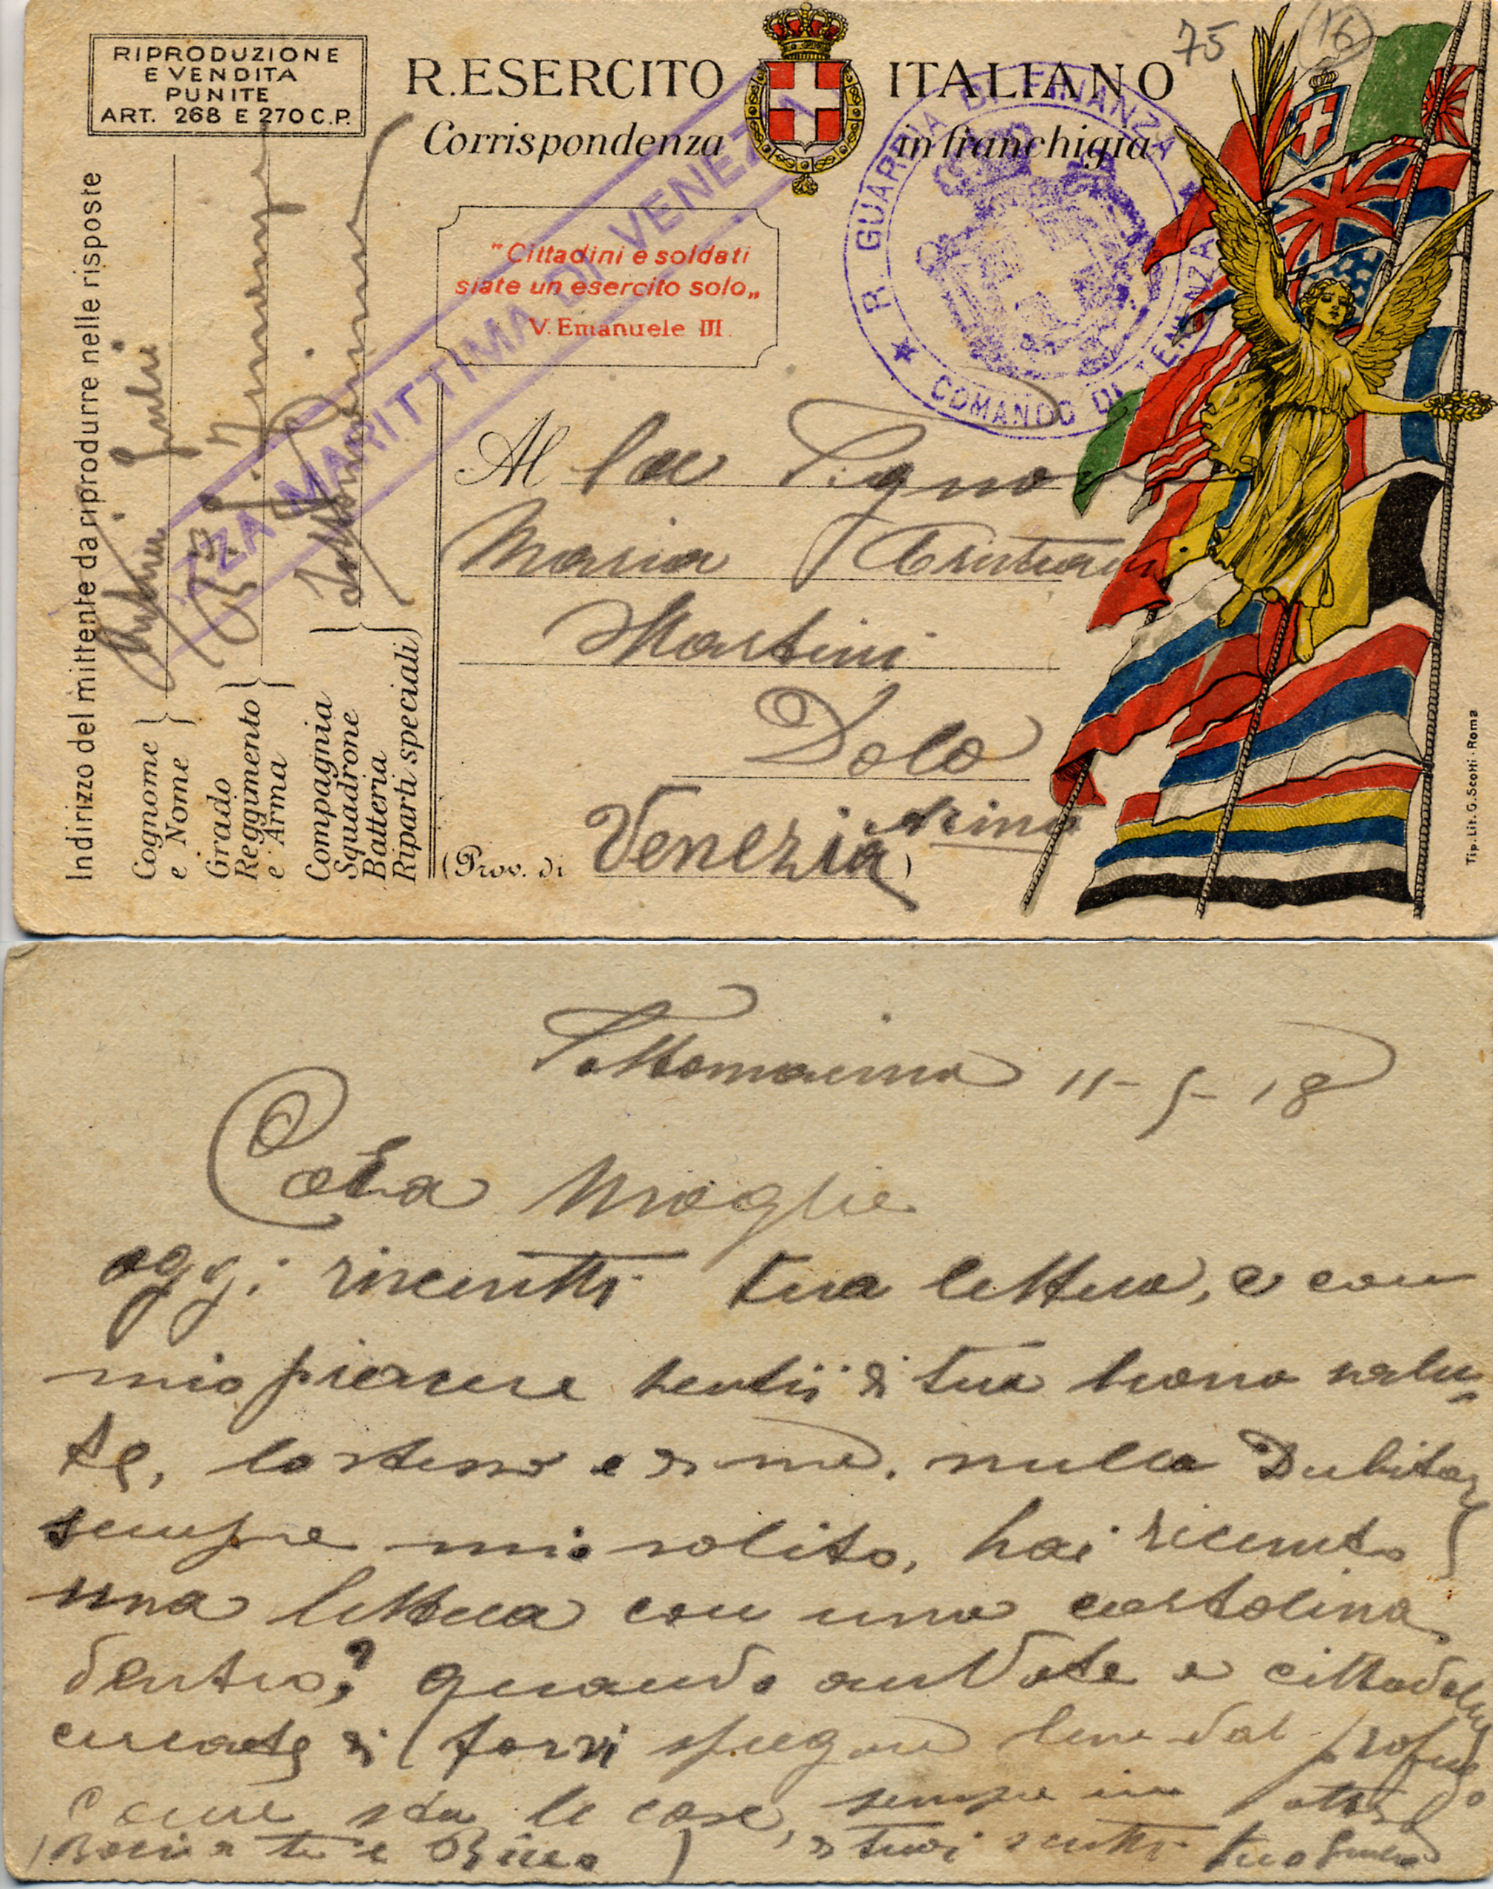 RIPRODUZIONE
E VENDITA
PUNITE
ART. 268 E 270 C.P.
R. ESERCITO ITALIANO
Corrispondenza in franchigia
75
16
"Cittadini e soldati
siate un esercito solo„
V. Emanuele III
R. GUARDIA DI FINANZA
COMANDO DI TENENZA
ZA MARITTIMA DI VENEZIA
Indirizzo del mittente da riprodurre nelle risposte
Cognome
e Nome
Grado
Reggimento
e Arma
Compagnia
Squadrone
Batteria
Riparti speciali
Al la Signora
Maria
Martini
Dolo
Arino
(Prov. di Venezia)
Tip. Lit. G. Scotti - Roma
Sottomarina 11-5-18
Cara Moglie
oggi ricevetti tua lettera, e con
mio piacere sentii di tua buona salu-
te, lo stesso e di me. nulla Dubitar
sempre mio solito, hai ricevuto
una lettera con una cartolina
dentro? quando andate a cittadella
cercate di farvi spiegare bene dal profugo
come sta le cose, sempre in
(Baci a te e ) di tuoi scritti tuo